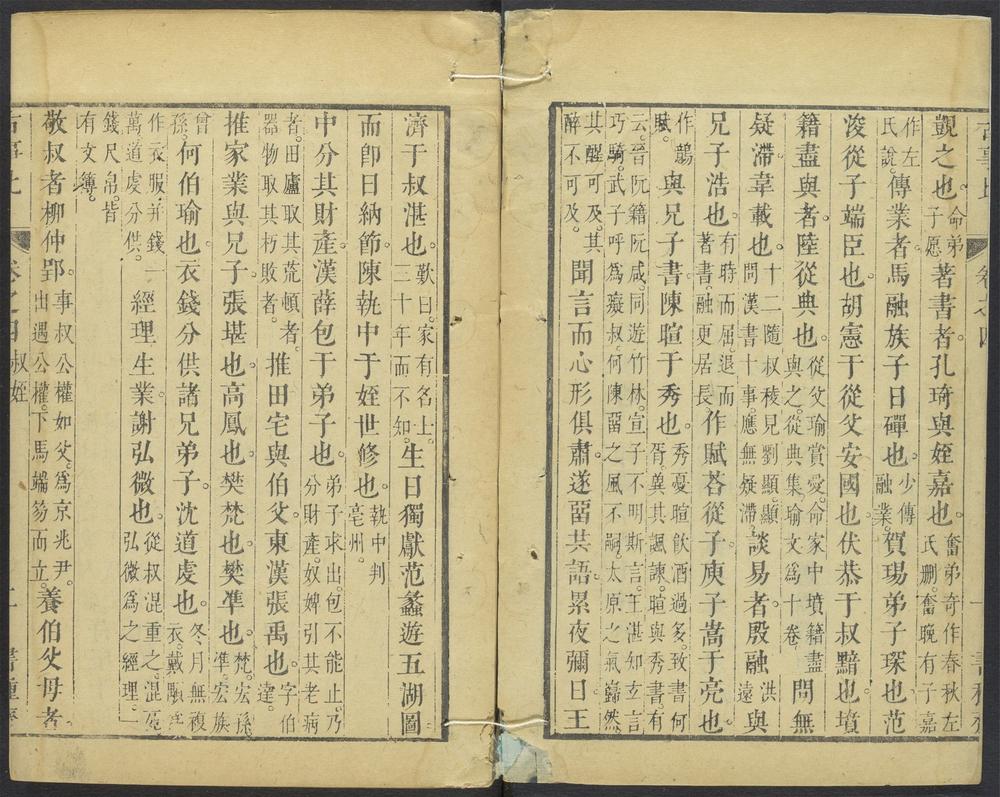 覬之也。命弟子愿著書者。孔琦與姪嘉也。奮弟奇作春秋左氏刪。奮晚有子嘉
作左氏說。傳業者。馬融族子日磾也。少傳融業。賀瑒弟子琛也。范
浚從子端臣也。胡憲于從父安國也。伏恭于叔黯也。墳
籍盡與者。陸從典也。從父瑜賞愛。命家中墳籍盡與之。從典集瑜文為十卷。問無
疑滯。韋載也。十二隨叔稜見劉顯。顯問漢書十事。應無疑滯。談易者。殷融洪遠與
兄子浩也。有時而屈。退而著書。融更居長作賦荅從子。庾子嵩于亮也
作鵩賦。與兄子書。陳暄于秀也。秀憂暄飲酒過多。致書何胥。冀其諷諫。暄與秀書。有
云晉阮籍阮咸同遊竹林。宣子不明斯言。王湛知玄言巧騎。武子呼為癡叔。何陳畱之風不嗣。太原之氣巋然。
其醒可及。其醉不可及。聞言而心形俱肅。遂畱共語。累夜彌日。王
濟于叔湛也。歎曰。家有名士。三十年而不知。生日獨獻范蠡遊五湖圖
而卽日納節。陳執中于姪世修也。執中判亳州。
中分其財產。漢薛包于弟子也。弟子求出。包不能止。乃分財產。奴婢引其老病
者。田廬取其荒頓者。器物取其朽敗者。推田宅與伯父。東漢張禹也。字伯達。
推家業與兄子。張堪也。高鳳也。樊梵也。樊準也。梵。宏孫。準。宏族
曾孫。何伯瑜也。衣錢分供諸兄弟子。沈道虔也。冬月無複衣。戴顒為
作衣服。并錢一萬。道虔分供。經理生業。謝弘微也。從叔混重之。混死。弘微為之經理。一
錢尺帛。皆有文簿。
敬叔者。柳仲郢。事叔公權如父。為京兆尹。出遇公權。下馬端笏而立。養伯父母者。
卷之四 叔姪